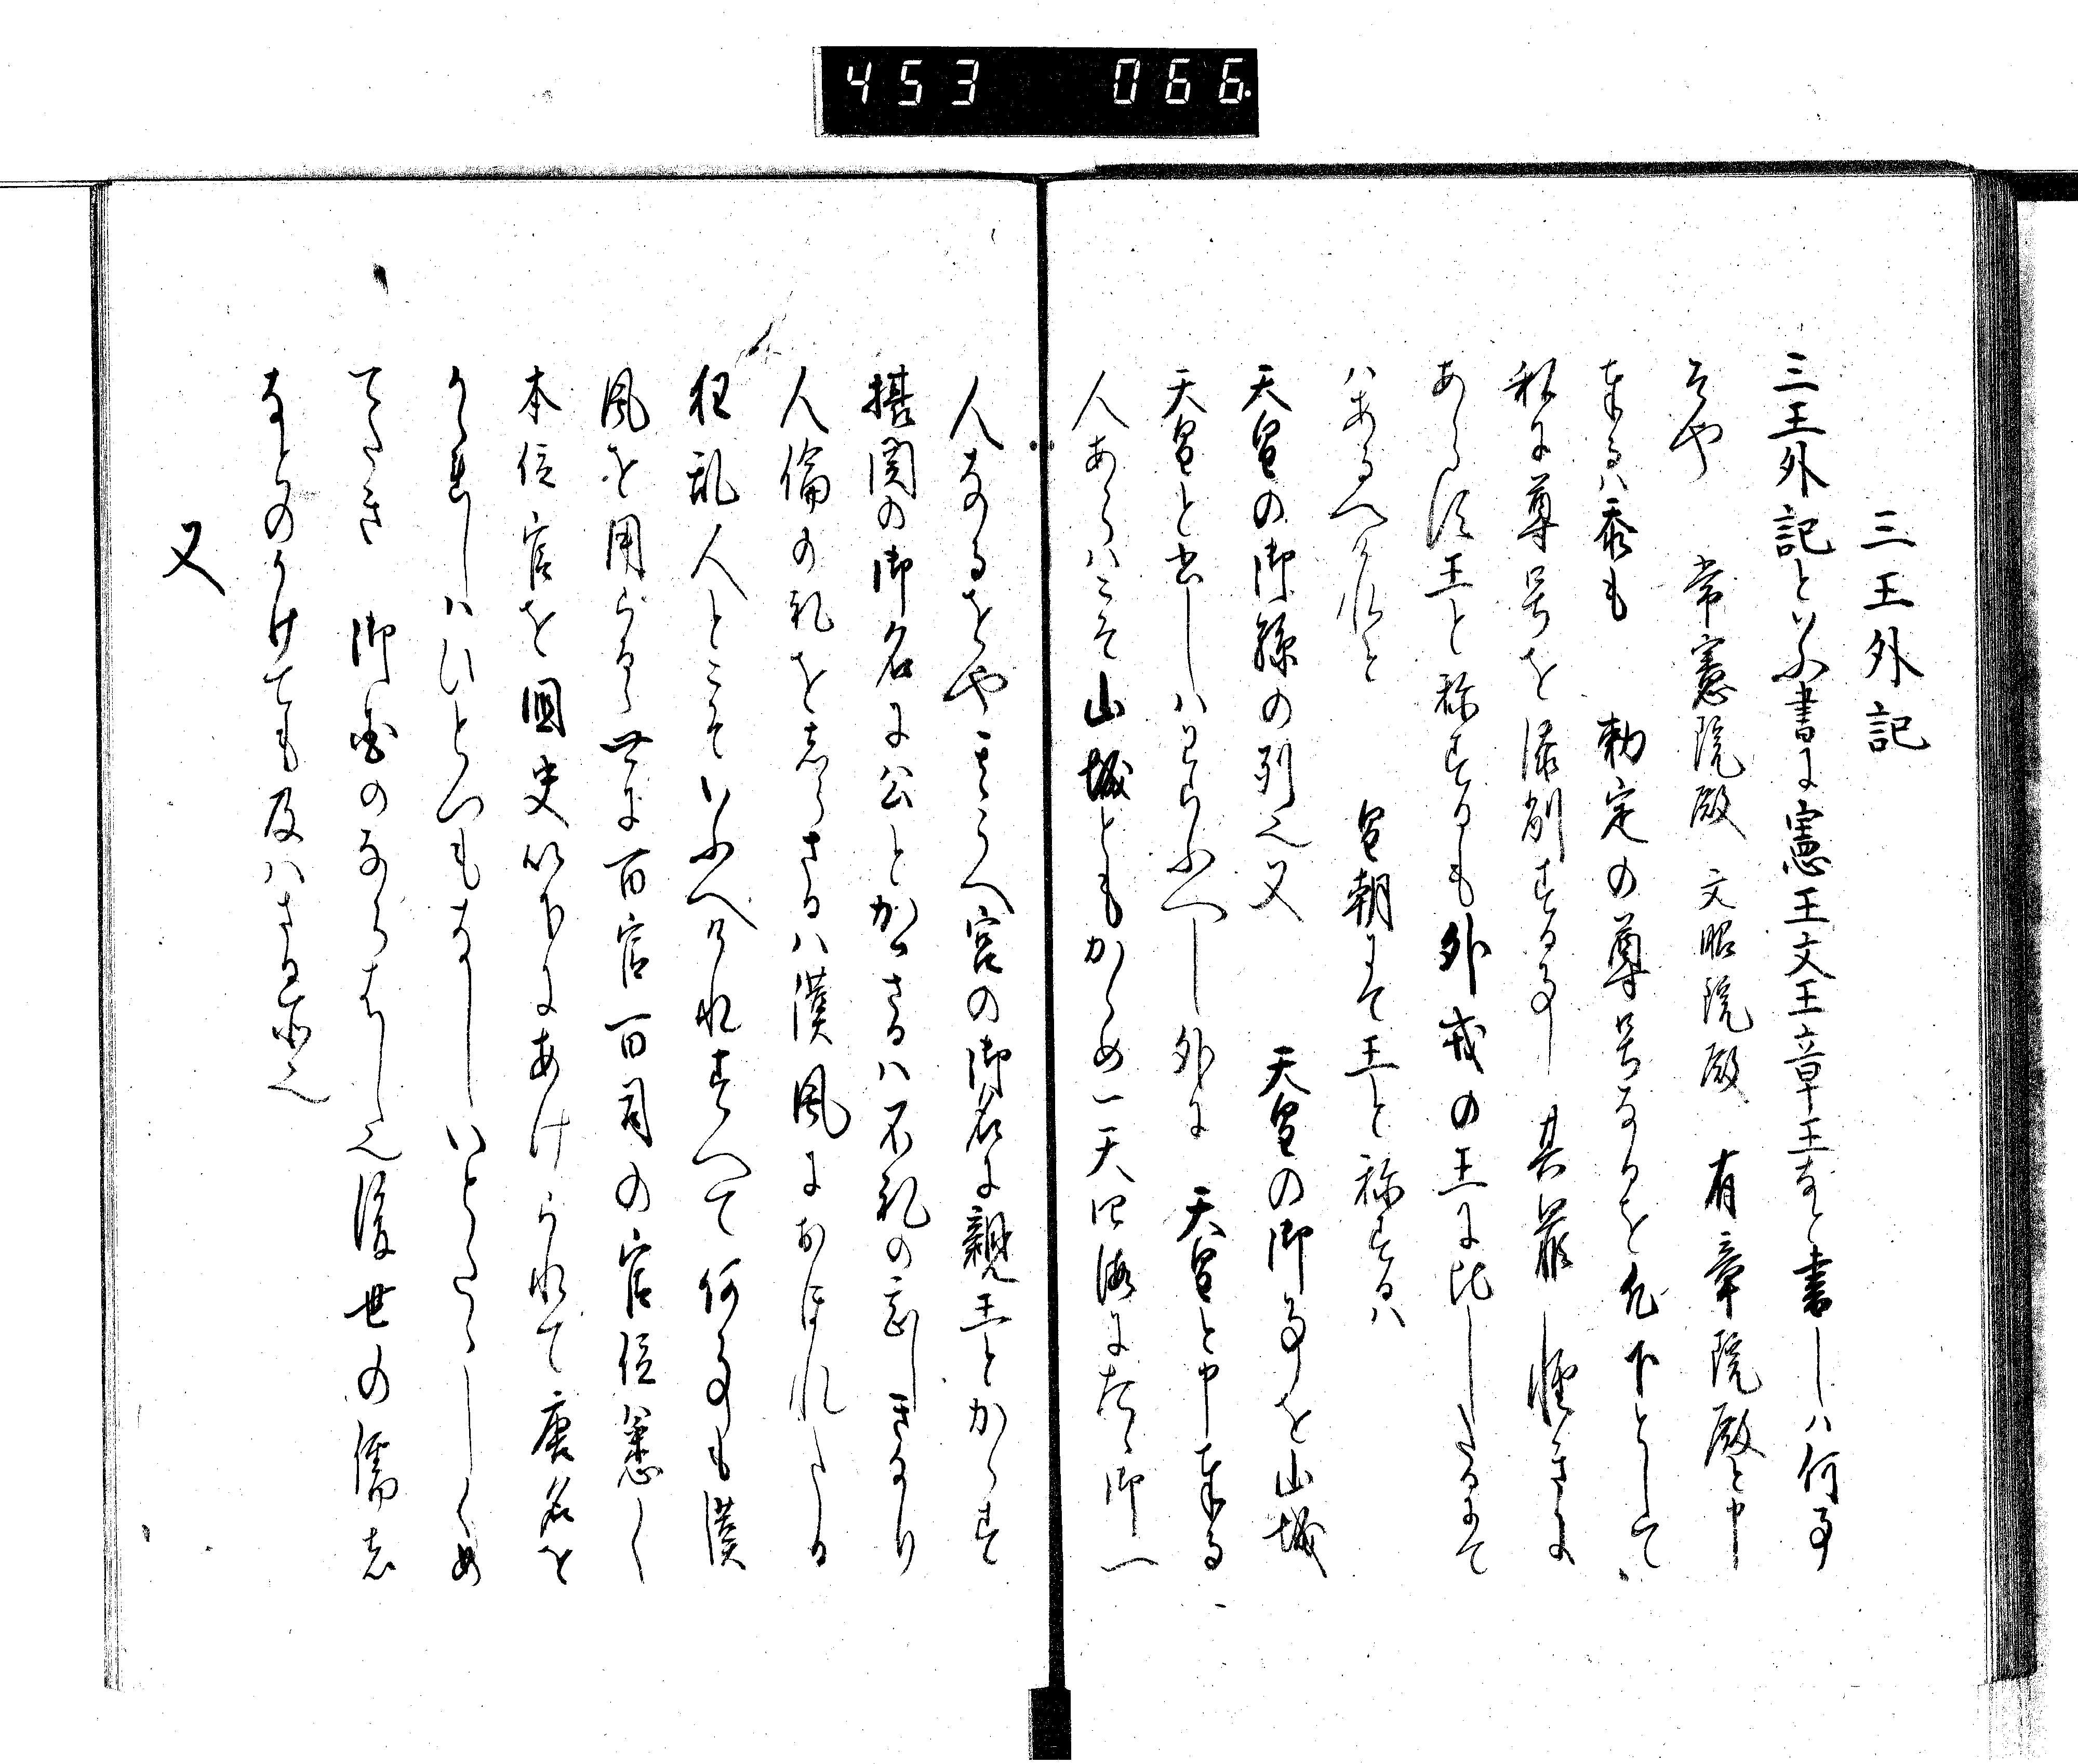 453 066
三王外記
三王外記といふ書に憲王文王章王なと書しハ何事
そや 常憲院殿 文昭院殿 有章院殿と申
奉るハ忝も 勅定の尊号なるを臣下として
私に尊号を添削する事 其罪軽きに
あらす王と称するも外戎の王に比したるにて
ハあるへけれと 皇朝にて王と称するハ
天皇の御孫の列也又 天皇の御事を山城
天皇と書しハわらふへし外に 天皇と申奉る
人あらハこそ山城ともかくめ一天四海にたゝ御一
人なるをや そのうへ宮の御名に親王とかゝす
摂関の御名に公とかゝさるハ不礼の
人倫の礼をしらさるハ漢風におほれたる
狂乱人とこそいふへけれすへて何事も漢
風を用らるゝ世に百官百司の官位悉く
本位官を国史以下にあけられて唐名を
しハひとつもなしいと
御国のならはし也後世の儒者
なとのかけても及ハさる所也
又